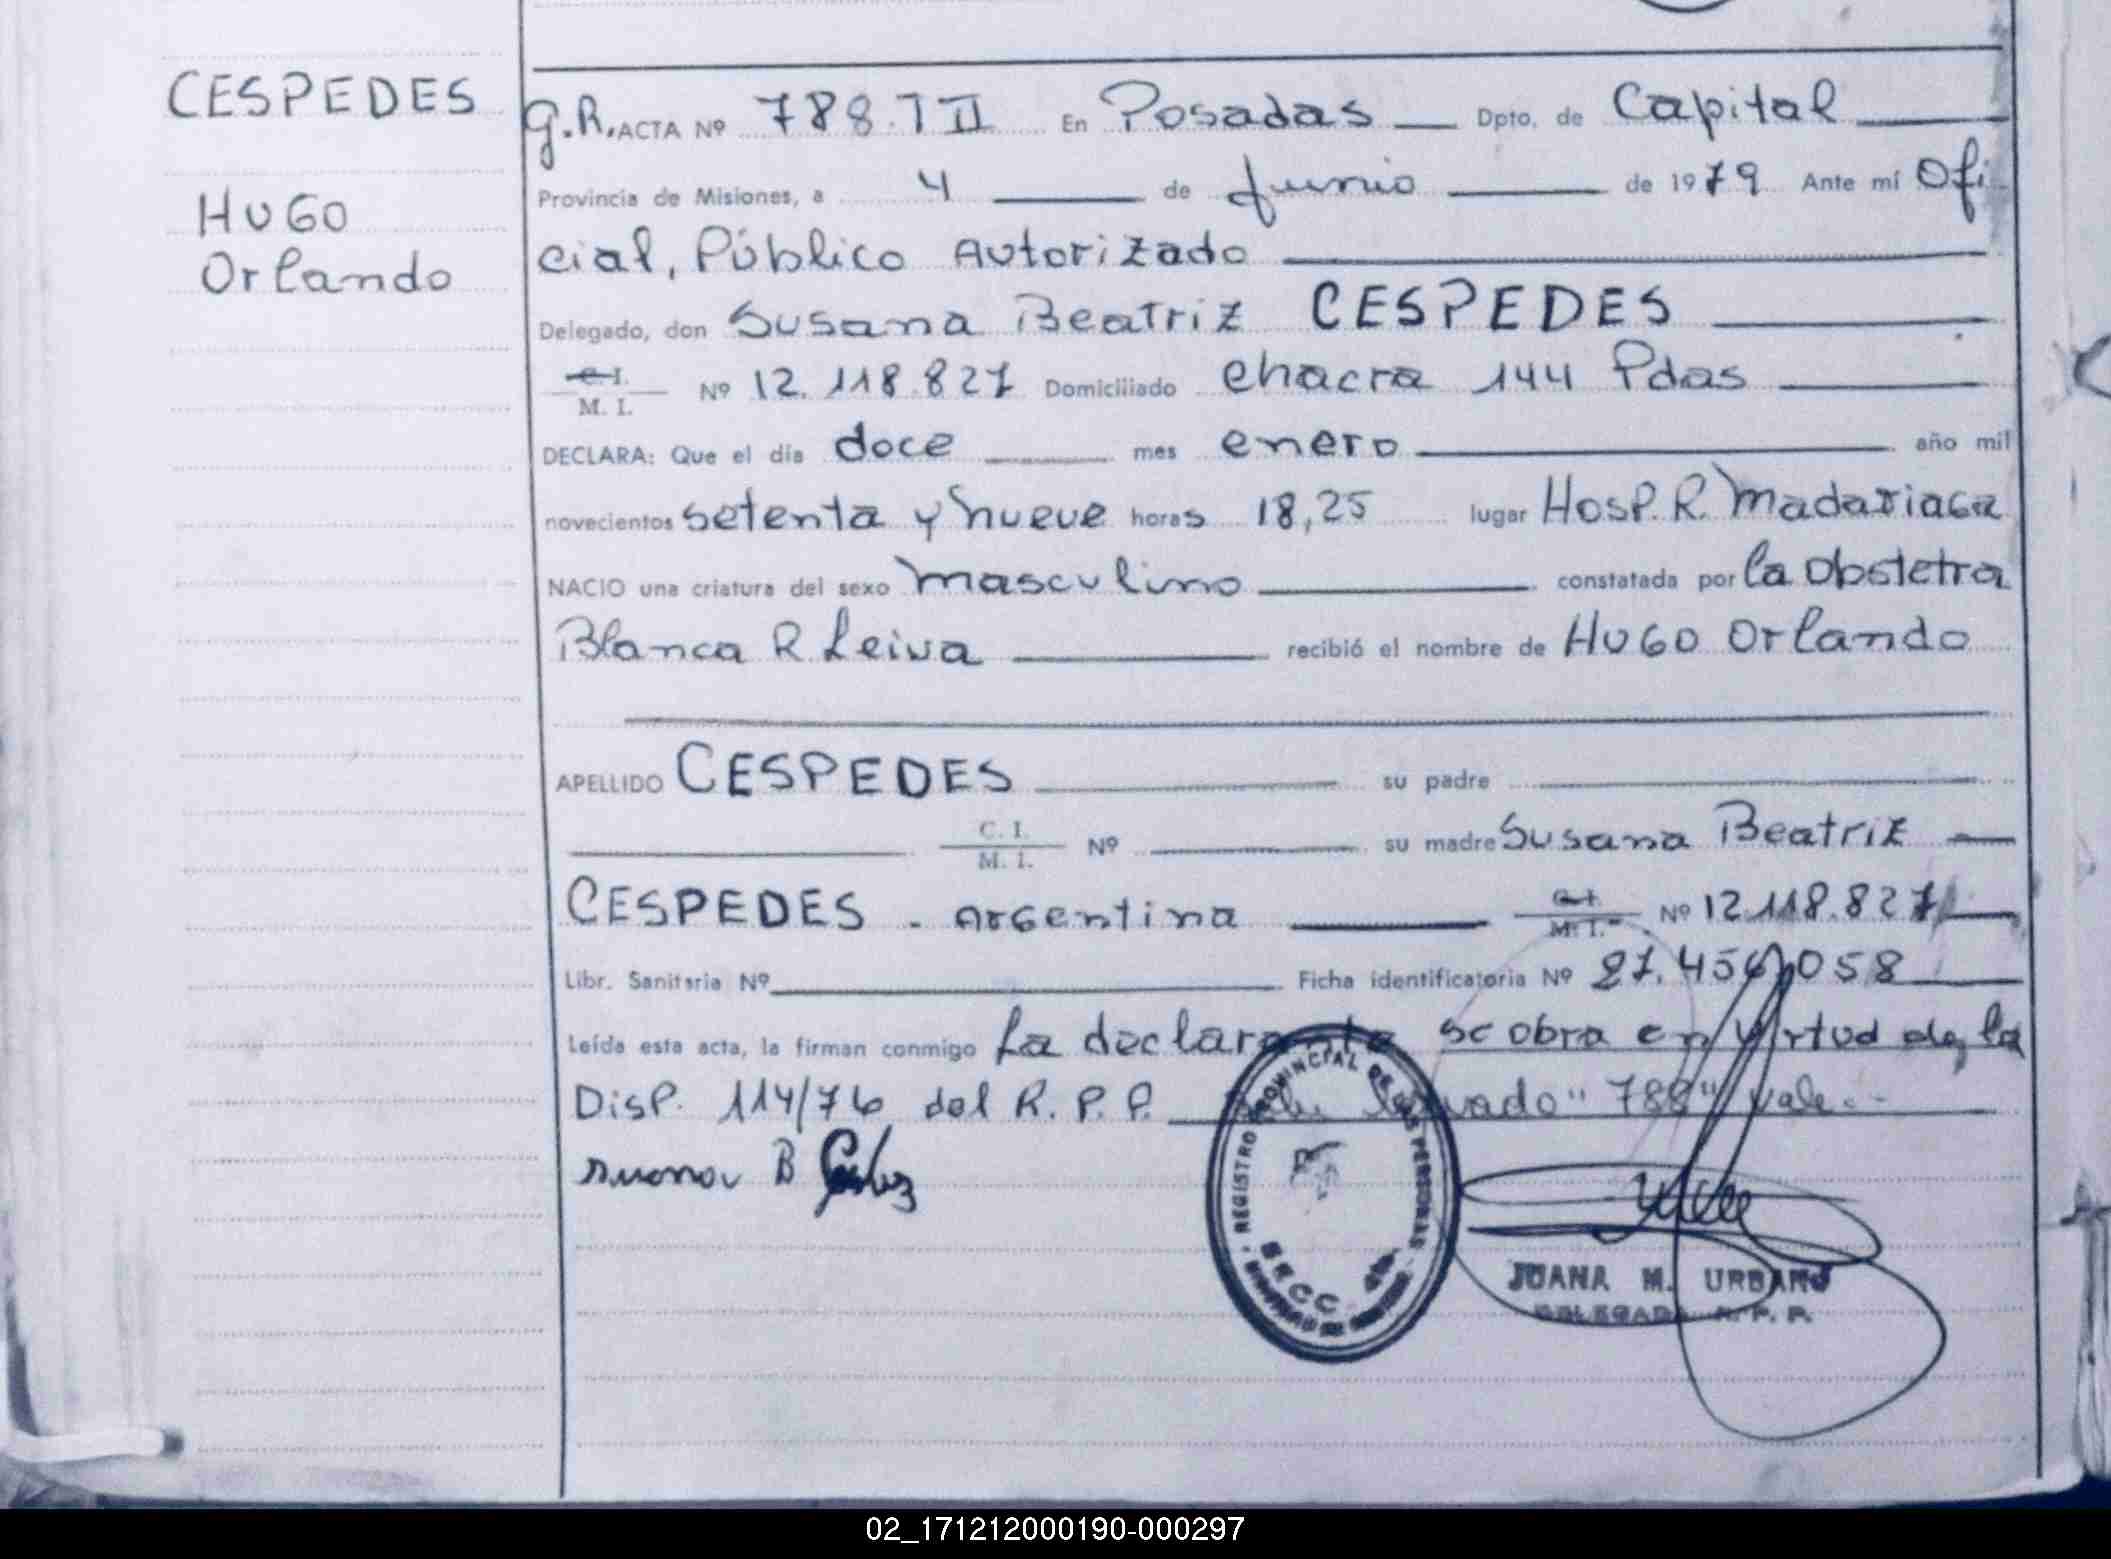 CESPEDES
HUGO
Orlando
G.R. ACTA Nº 788.T II En Posadas Dpto. de Capital
Provincia de Misiones, a 4 de Junio de 1979 Ante mí Ofi
cial, Público Autorizado
Delegado, don Susana Beatriz CESPEDES
C. I. / M. I. Nº 12.118.827 Domiciliado chacra 144 Pdas
DECLARA: Que el día doce mes enero año mil
novecientos setenta y nueve horas 18,25 lugar Hosp. R. Madariaga
NACIO una criatura del sexo masculino constatada por la obstetra
Blanca R Leiva recibió el nombre de HUGO Orlando
APELLIDO CESPEDES su padre
C. I. / M. I. Nº su madre Susana Beatriz
CESPEDES - Argentina C. I. / M. I. Nº 12.118.827
Libr. Sanitaria Nº Ficha identificatoria Nº 27.456.058
Leída esta acta, la firman conmigo La declarante se obra en virtud de la
Disp. 114/76 del R. P. P. "788" vale.-
Susana B
REGISTRO PROVINCIAL DE LAS PERSONAS
SECC.
JUANA M. URBANO
DELEGADA R. P. P.
02_171212000190-000297